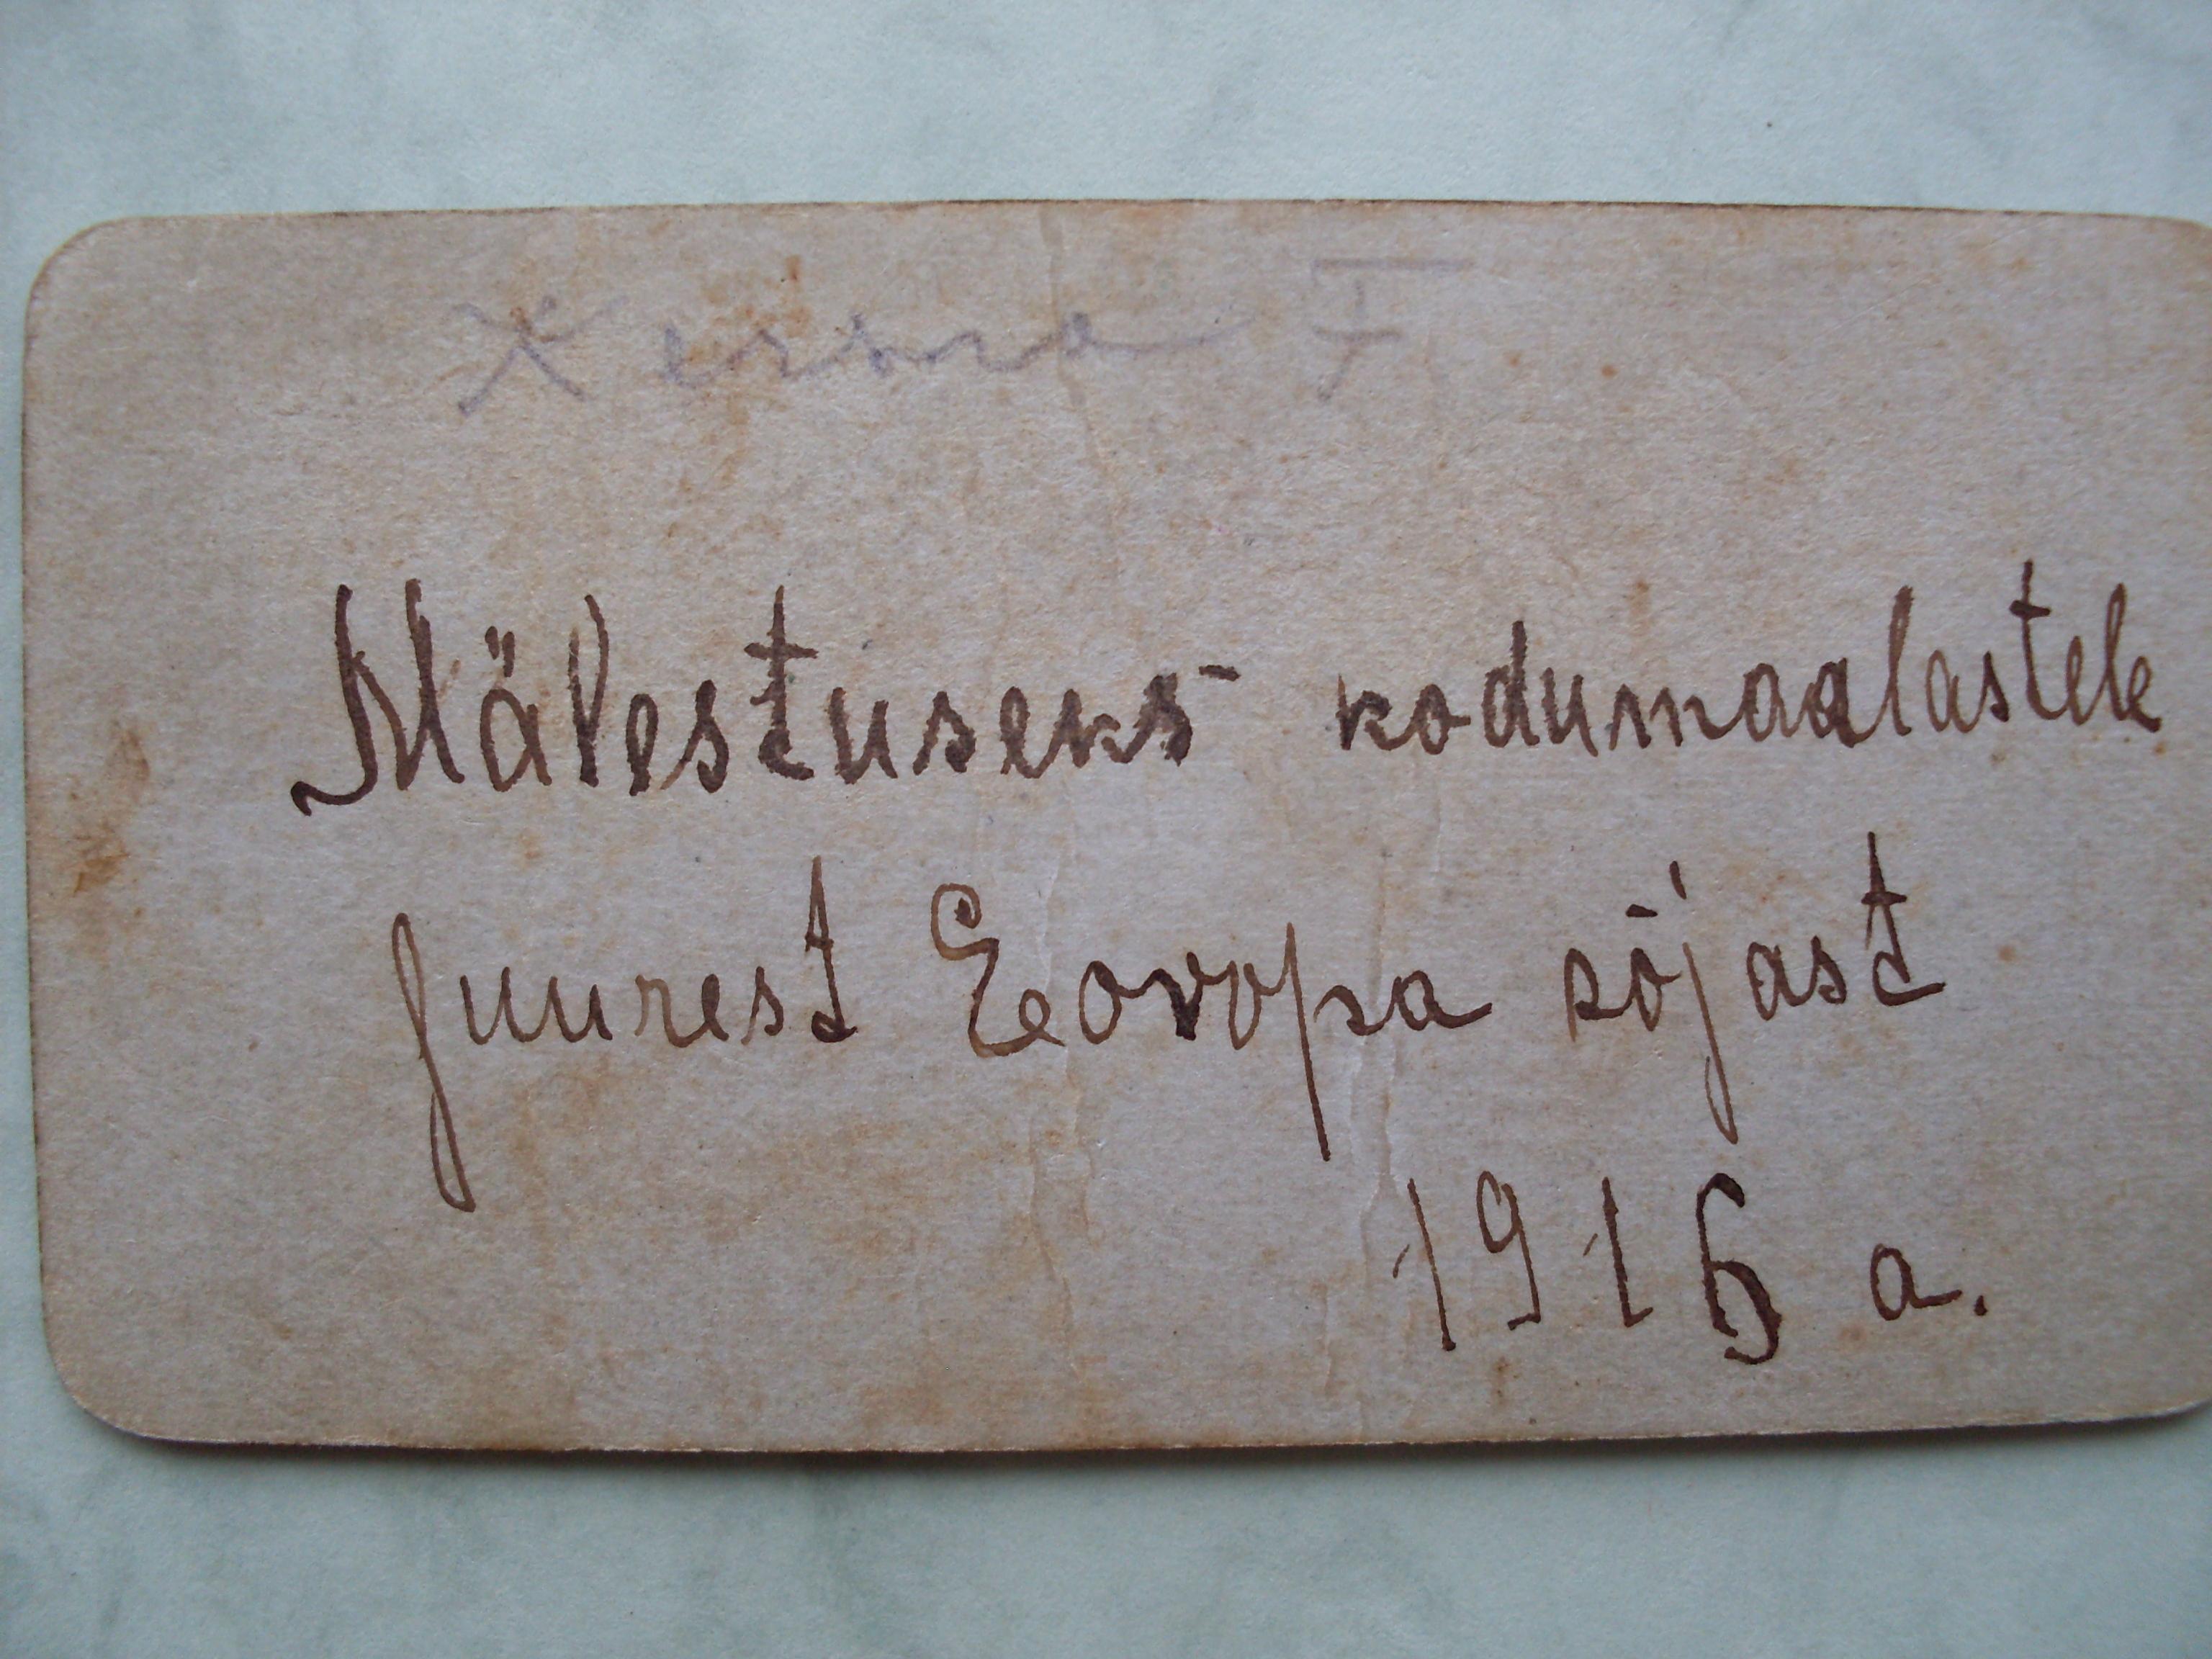 Mälestuseks kodumaalastele
juurest Eoropa sõjast
1916 a.